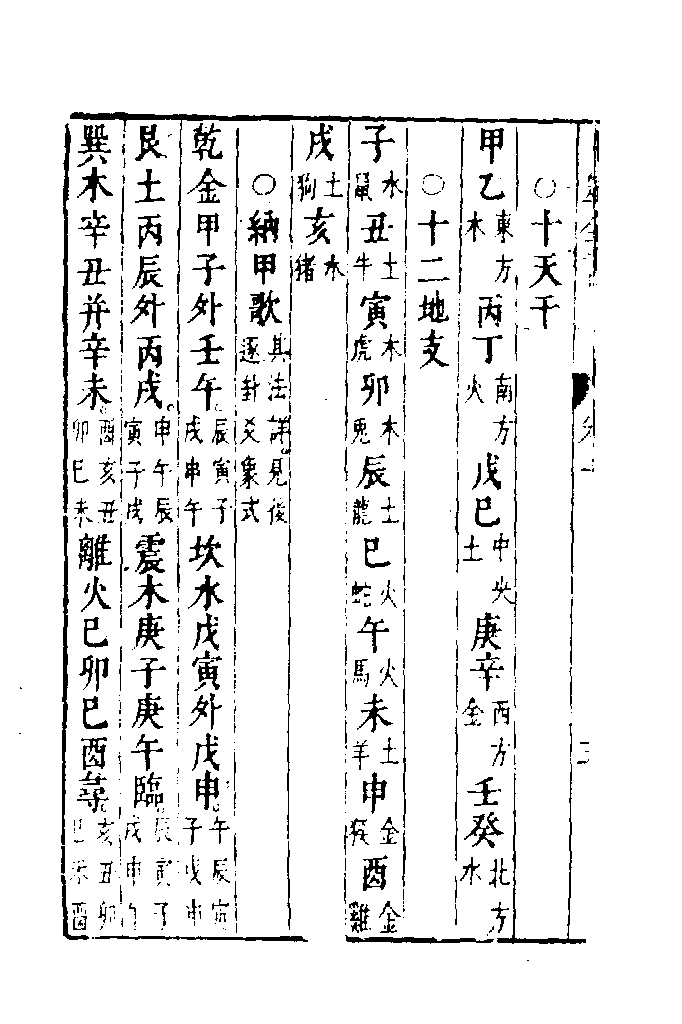 ○十天干
甲乙東方木丙丁南方火戊巳中央土庚辛西方金壬癸北方水
○十二地支
子水鼠丑土牛寅木虎卯木兎辰土龍巳火蛇午火馬未土羊申金猴酉金雞
戌土狗亥水猪
○納甲歌其法詳見後逐卦爻象式
乾金甲子外壬午辰寅子戌申午坎水戊寅外戊申午辰寅子戌申
艮土丙辰外丙戌申午辰寅子戌震木庚子庚午臨辰寅子戌申午
巽木辛丑并辛未酉亥丑卯巳未離火巳卯巳酉尋亥丑卯巳未酉